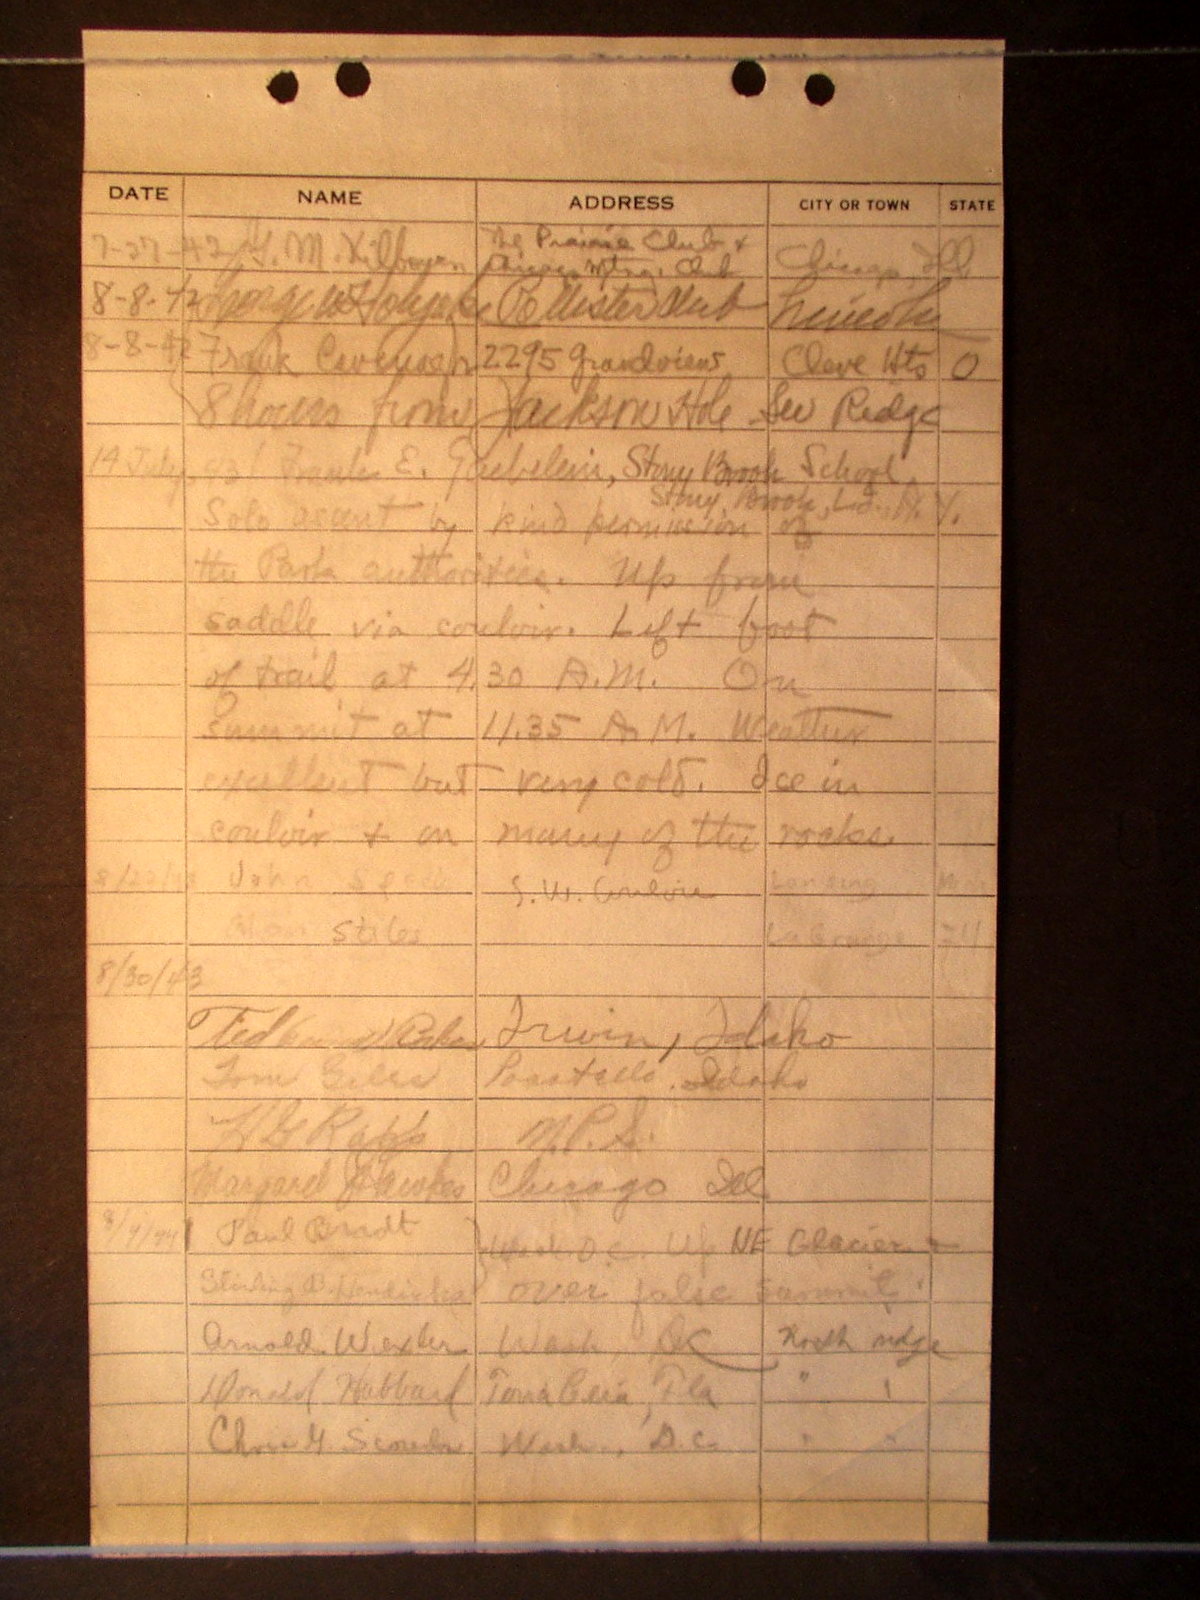 DATE NAME ADDRESS CITY OR TOWN STATE
7-27-42 The Prairie Club &
Chicago Mtng. Club Chicago, Ill
8-8-42 George W Club Lincoln
8-8-42 Frank 2295 Grandview Cleve Hts O
8 hours from Jackson Hole S.W. Ridge
14 July, 43 Frank E. Gaebelein, Stony Brook School,
Stony Brook, L.I., N.Y.
Solo ascent by kind permission of
the Park authorities. Up from
saddle via couloir. Left foot
of trail at 4.30 A.M. On
Summit at 11.35 A.M. Weather
excellent but very cold. Ice in
couloir & on many of the rocks.
John S.W. Couloir Lansing
Stiles La Grange Ill
8/30/43
Irwin, Idaho
Tom Giles Pocatello. Idaho
H G Rapp
Margaret Hawkes Chicago Ill.
Paul Bradt Wash. D.C. Up NE Glacier &
Sterling B. Hendricks over false summit
Arnold Wexler Wash, DC North ridge
Donald Hubbard Terra Ceia, Fla " "
Chris Scoredos Wash., D.C. " "